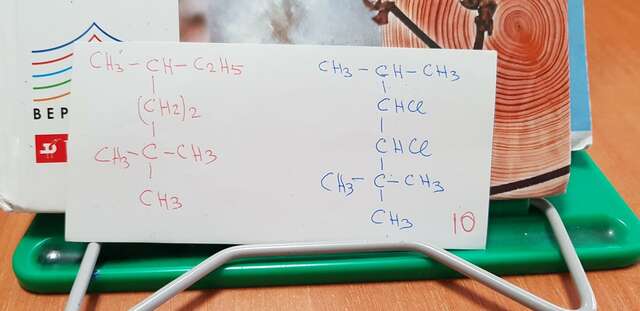 CH3-CH-C2H5
(CH2)2
CH3-C-CH3
CH3
CH3-CH-CH3
CHCl
CHCl
CH3-C-CH3
CH3
10
BEP